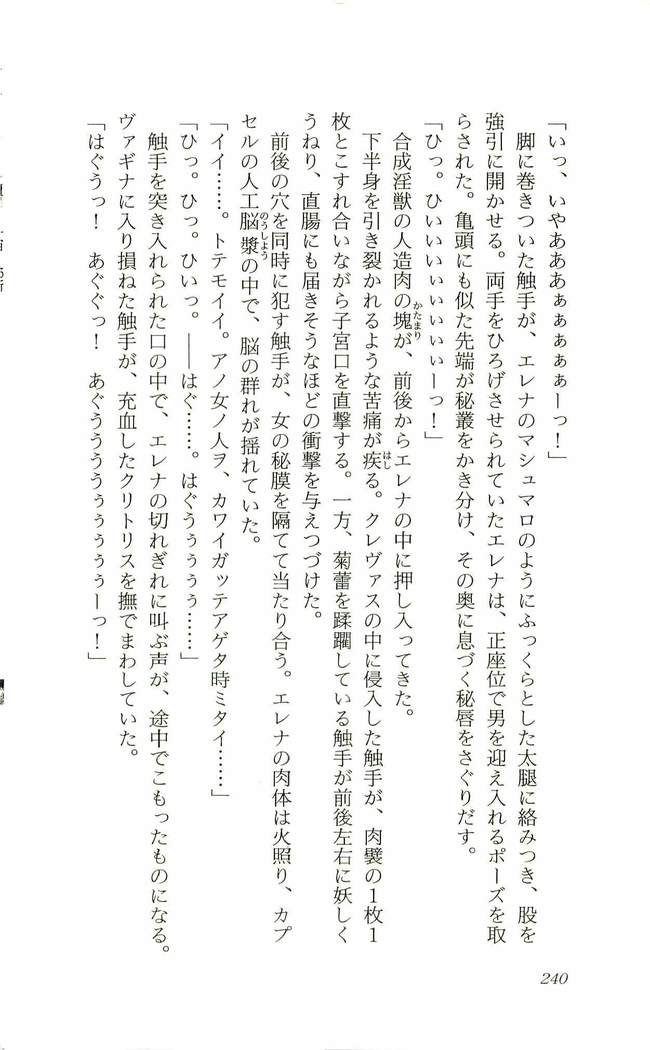 「いっ、いやあああぁぁぁぁぁーっ！」
脚に巻きついた触手が、エレナのマシュマロのようにふっくらとした太腿に絡みつき、股を
強引に開かせる。両手をひろげさせられていたエレナは、正座位で男を迎え入れるポーズを取
らされた。亀頭にも似た先端が秘叢をかき分け、その奥に息づく秘唇をさぐりだす。
「ひっ。ひいぃぃぃぃぃぃーっ！」
合成淫獣の人造肉の塊が、前後からエレナの中に押し入ってきた。
下半身を引き裂かれるような苦痛が疾る。クレヴァスの中に侵入した触手が、肉襞の１枚１
枚とこすれ合いながら子宮口を直撃する。一方、菊蕾を蹂躙している触手が前後左右に妖しく
うねり、直腸にも届きそうなほどの衝撃を与えつづけた。
前後の穴を同時に犯す触手が、女の秘膜を隔てて当たり合う。エレナの肉体は火照り、カプ
セルの人工脳漿の中で、脳の群れが揺れていた。
「イイ……。トテモイイ。アノ女ノ人ヲ、カワイガッテアゲタ時ミタイ……」
「ひっ。ひっ。ひいっ。――はぐ……。はぐうぅぅぅ……」
触手を突き入れられた口の中で、エレナの切れぎれに叫ぶ声が、途中でこもったものになる。
ヴァギナに入り損ねた触手が、充血したクリトリスを撫でまわしていた。
「はぐうっ！　あぐぐっ！　あぐうううぅぅぅぅーっ！」
240